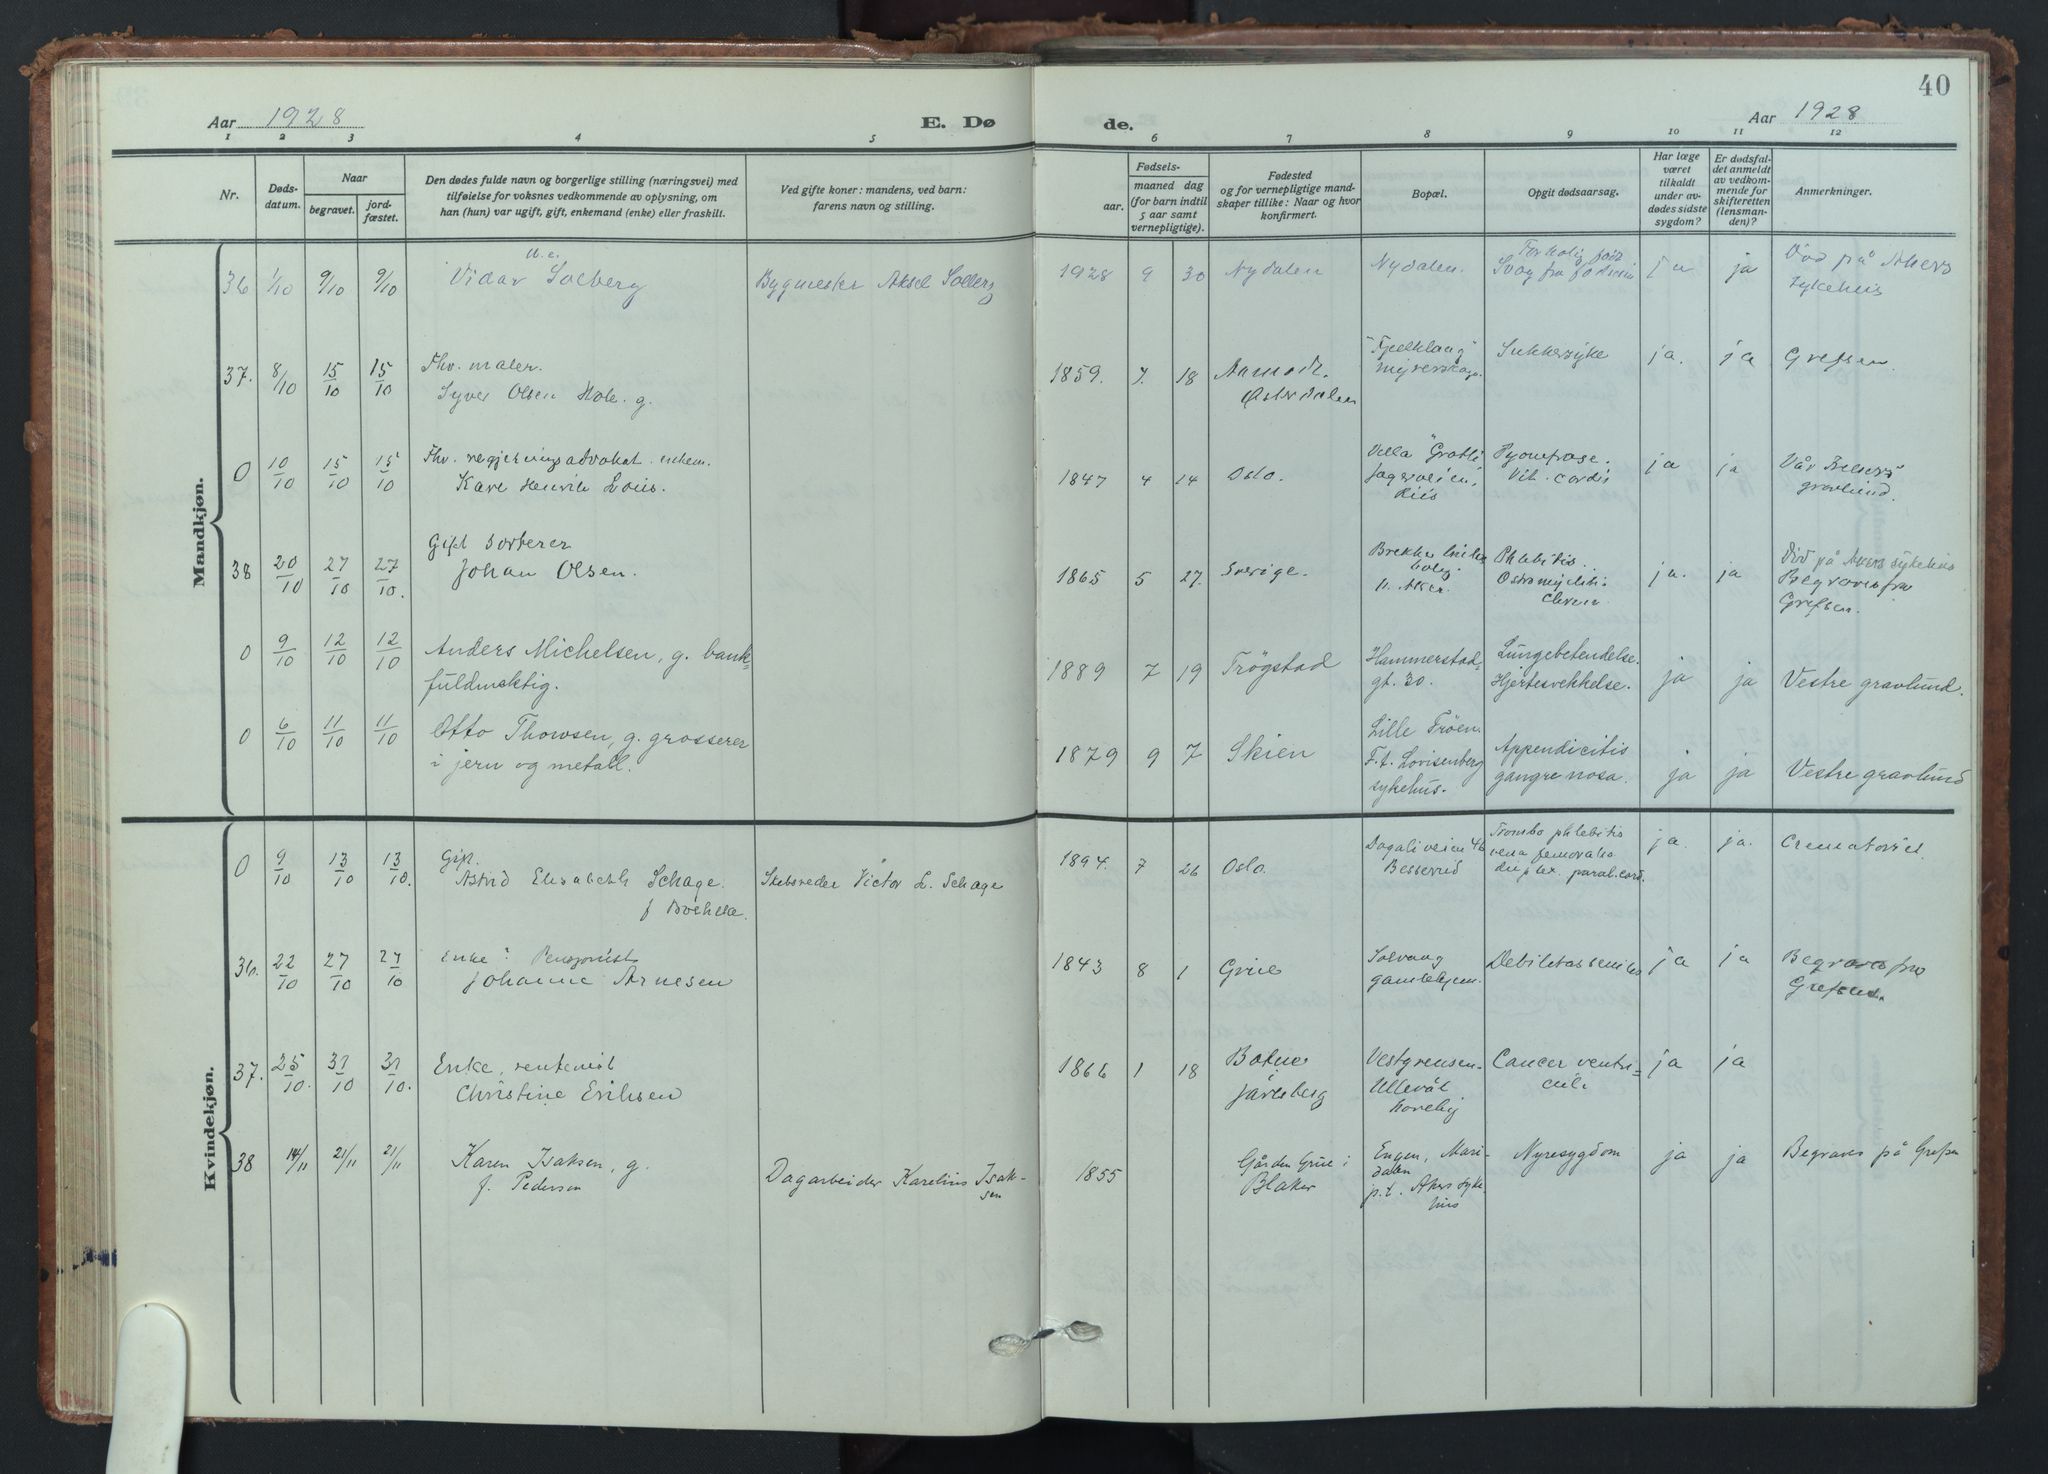 40
Aar 1928
E. Dø
de.
Aar 1928
1 2 3 4 5 6 7 8 9 10 11 12
Nr.
Døds-
datum.
Naar
begravet.
jord-
fæstet.
Den dødes fulde navn og borgerlige stilling (næringsvei) med
tilføielse for voksnes vedkommende av oplysning, om
han (hun) var ugift, gift, enkemand (enke) eller fraskilt.
Ved gifte koner: mandens, ved barn:
farens navn og stilling.
Fødsels-
aar.
maaned dag
(for barn indtil
5 aar samt
vernepligtige).
Fødested
og for vernepligtige mand-
skaper tillike: Naar og hvor
konfirmert.
Bopæl.
Opgit dødsaarsag.
Har læge
været
tilkaldt
under av-
dødes sidste
sygdom?
Er dødsfal-
det anmeldt
av vedkom-
mende for
skifteretten
(lensman-
den)?
Anmerkninger.
Mandkjøn.
36 1/10 9/10 9/10
Vidar Solberg
Bygmester Aksel Solberg
1928 9 30 Nydalen Nydalen.
Svag fra fødselen
ja ja
Død på Akers
sykehus
37. 8/10 15/10 15/10
Fhv. maler.
Syver Olsen Hole. g.
1859. 7. 18
Østerdalen
Sukkersyke
ja. ja Grefsen.
0 10/10 15/10 15/10
Fhv. regjeringsadvokat. enkem.
Karl Henrik Louis.
1847 4 14 Oslo.
Villa "Grotli"
Riis
Vit. cordis
ja ja
Vår Frelsers
gravlund.
38 20/10 27/10 27/10.
Gift sorterer
Johan Olsen.
1865 5 27. Sverige.
N. Aker.
Phlebitis.
ja. ja
Død på Akers sykehus
Begraves fra
Grefsen.
0 9/10 12/10 12/10
Anders Michelsen, g. bank-
fuldmektig.
1889 7 19 Trøgstad
Hammerstad-
gt. 30.
Lungebetendelse.
Hjertesvekkelse.
ja ja Vestre gravlund.
0 6/10 11/10 11/10
Otto Thowsen, g. grosserer
i jern og metall.
1879 9 7 Skien
Lille Frøen.
F.t. Lovisenberg
sykehus.
Appendicitis
gangrenosa.
ja ja Vestre gravlund
Kvindekjøn.
0 9/10 13/10 13/10.
Gift.
Astrid Elisabeth Schage.
f
Skibsreder Victor L. Schage
1894. 7 26 Oslo.
Dagaliveien 46
Besserud
Trombo phlebitis
vena femoralis
duplex paral. cord.
ja. ja. Crematoriet.
36. 22/10 27/10 27/10
Enke: Pensjonist
Johanne Arnesen
1843 8 1 Grue
Solvang
gamlehjem.
Debilitas senilis
ja ja
Begraves fra
Grefsen.
37. 25/10. 31/10 31/10.
Enke, rentenist
Christine Eriksen
1866 1 18
Botne
Jarlsberg
Vestgrensen-
Ullevål
haveby
Cancer ventri-
culi
ja ja
38 14/11 21/11 21/11
Karen Isaksen, g.
f. Pedersen
Dagarbeider Karelius Isak-
sen
1855
Gården Grue i
Blaker
Engen, Mari-
dalen
p.t. Akers syke-
hus
Nyresygdom
ja ja Begraves på Grefsen